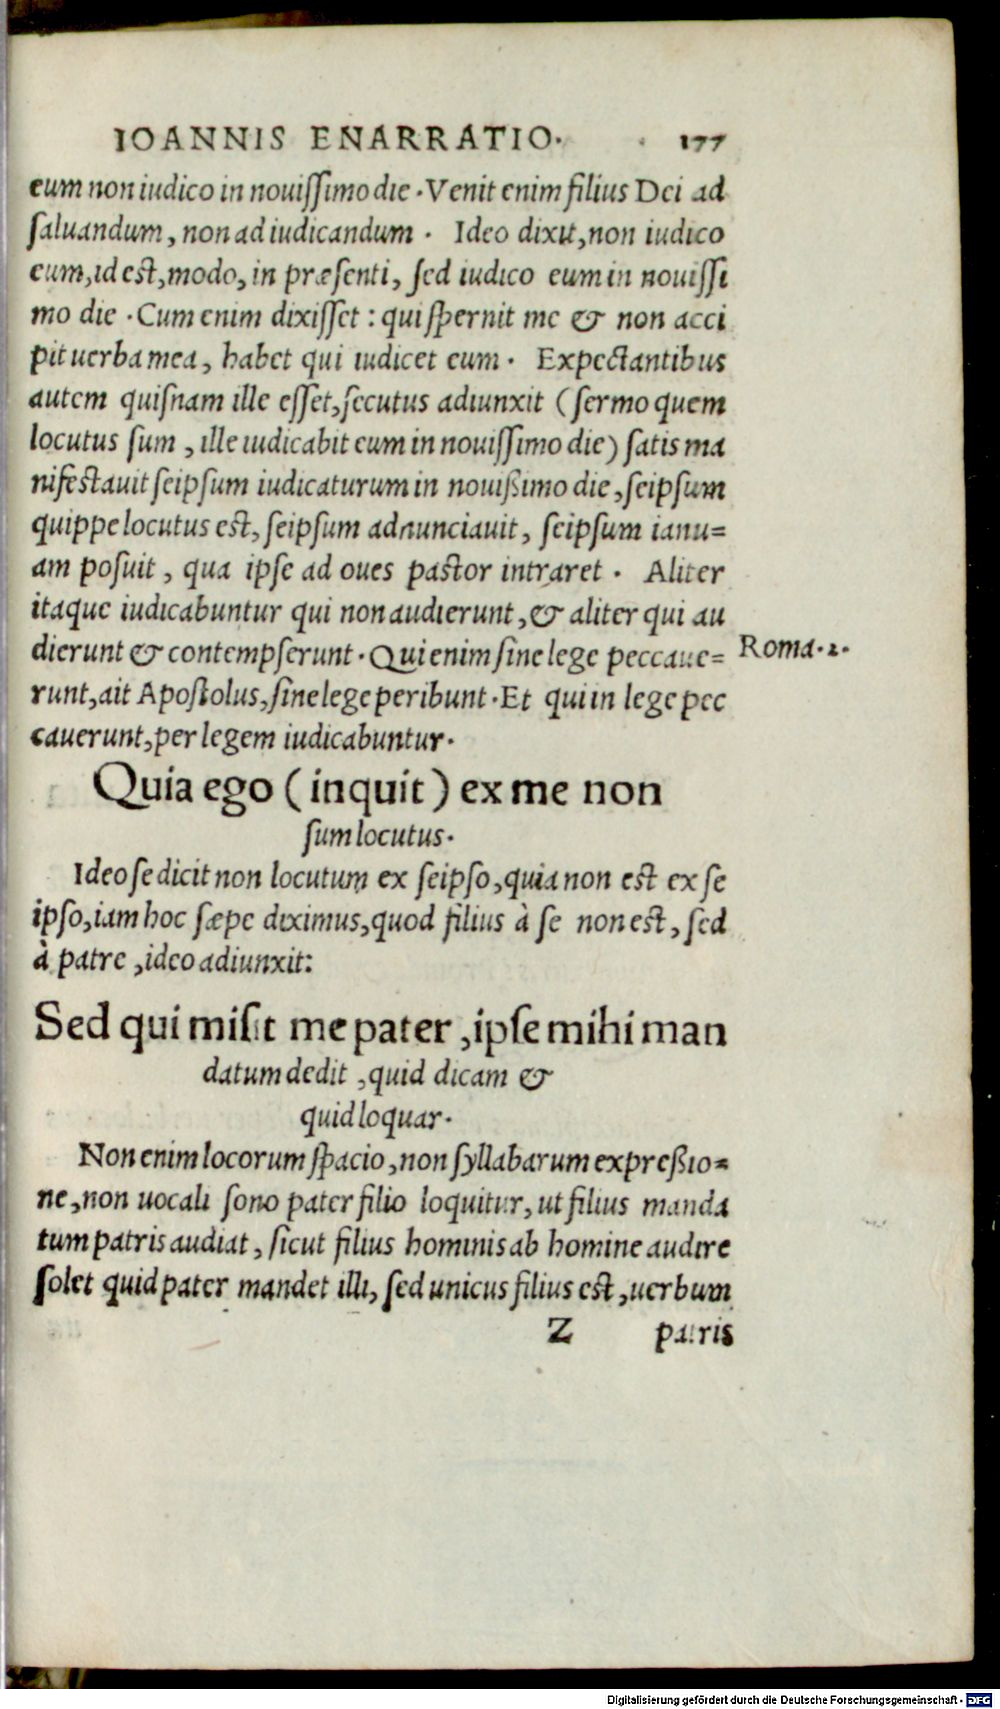 IOANNIS ENARRATIO. 177
eum non iudico in nouissimo die. Venit enim filius Dei ad
saluandum, non ad iudicandum. Ideo dixit, non iudico
eum, id est, modo, in præsenti, sed iudico eum in nouissi
mo die. Cum enim dixisset: qui spernit me & non acci
pit uerba mea, habet qui iudicet eum. Expectantibus
autem quisnam ille esset, secutus adiunxit (sermo quem
locutus sum, ille iudicabit eum in nouissimo die) satis ma
nifestauit seipsum iudicaturum in nouißimo die, seipsum
quippe locutus est, seipsum adnunciauit, seipsum ianu=
am posuit, qua ipse ad oues pastor intraret. Aliter
itaque iudicabuntur qui non audierunt, & aliter qui au
dierunt & contempserunt. Qui enim sine lege peccaue= Roma.2.
runt, ait Apostolus, sine lege peribunt. Et qui in lege pec
cauerunt, per legem iudicabuntur.
Quia ego (inquit) ex me non
sum locutus.
Ideo se dicit non locutum ex seipso, quia non est ex se
ipso, iam hoc sæpe diximus, quod filius à se non est, sed
à patre, ideo adiunxit:
Sed qui misit me pater, ipse mihi man
datum dedit, quid dicam &
quid loquar.
Non enim locorum spacio, non syllabarum expreßio=
ne, non uocali sono pater filio loquitur, ut filius manda
tum patris audiat, sicut filius hominis ab homine audire
solet quid pater mandet illi, sed unicus filius est, uerbum
Z patris
Digitalisierung gefördert durch die Deutsche Forschungsgemeinschaft - DFG